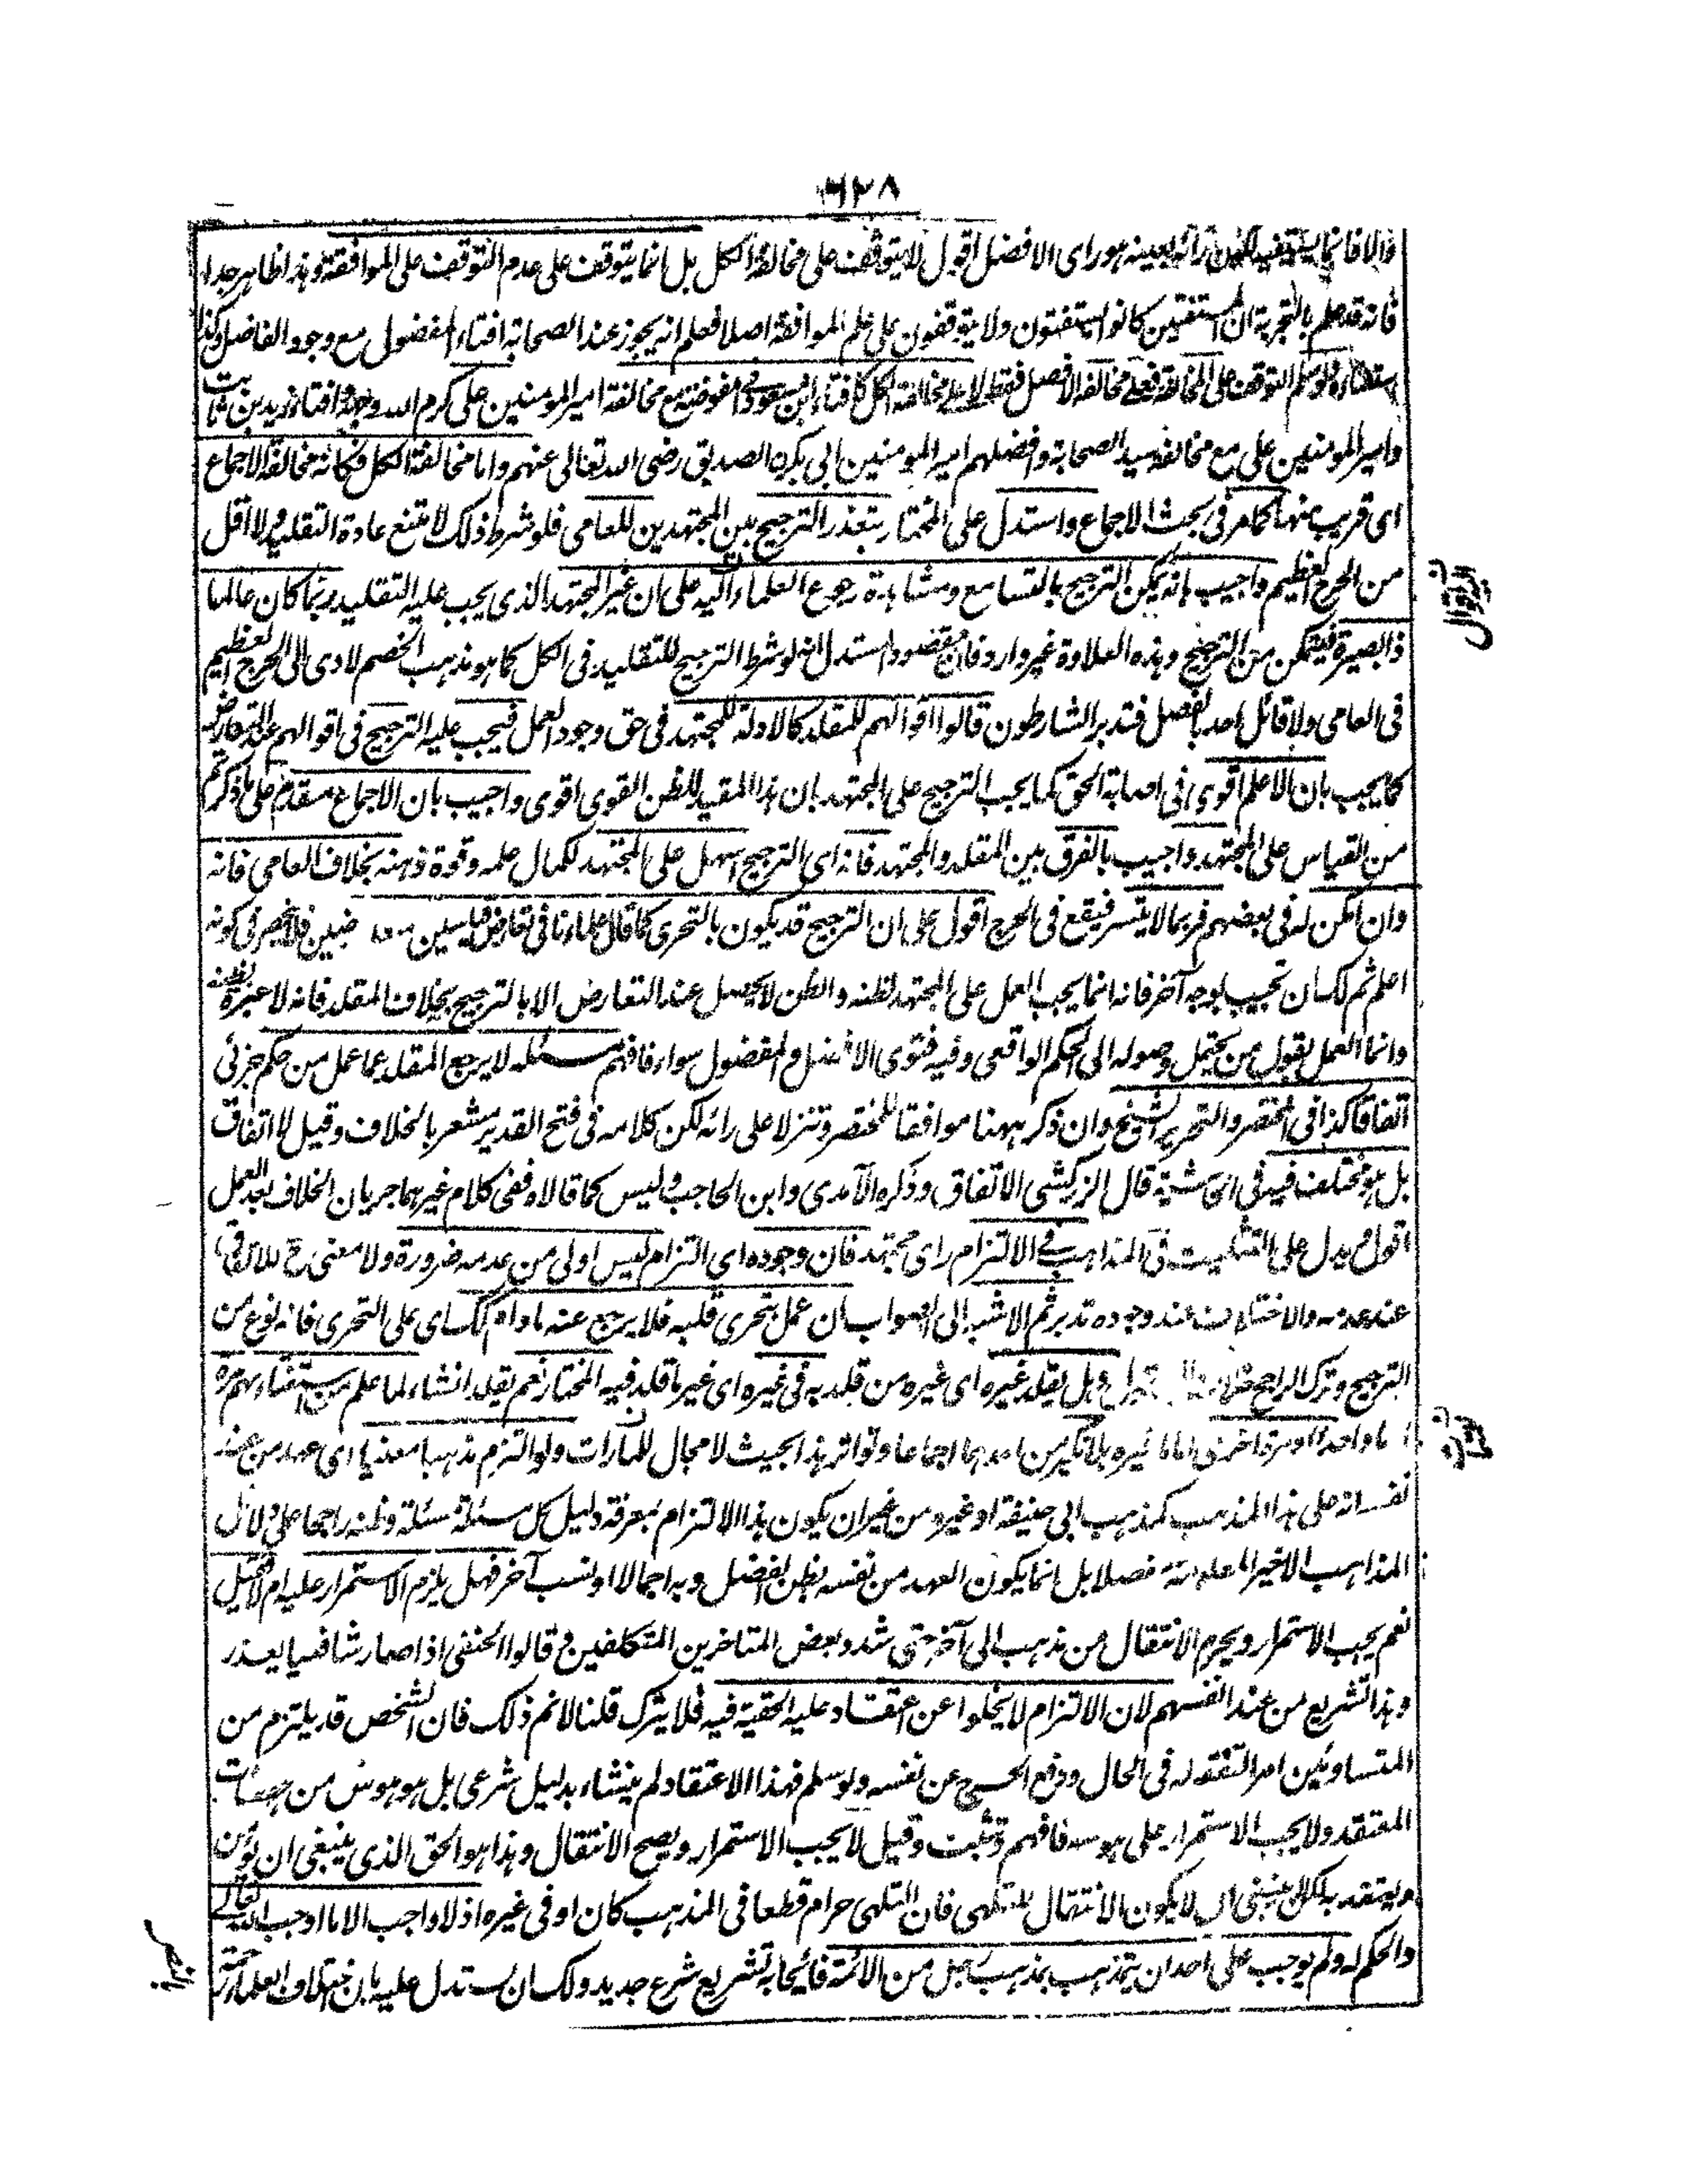 ٦٢٨
والا فانما يستفتيه لكون رأيه بعينه هو راى الافضل اقول لا يتوقف على مخالفة الكل بل انما يتوقف على عدم التوقف على الموافقة وهذا ظاهر جدا
فانه قد علم بالتجربة ان المستفتين كانوا يستفتون ولا يتوقفون على علم الموافقة اصلا فعلم انه يجوز عند الصحابة افتاء المفضول مع وجود الفاضل وكذا
استفتاءه ولو سلم التوقف على المخالفة فعلى مخالفة الافضل فقط لا على مخالفة الكل كافتاء ابن مسعود فى مفوضة مع مخالفة امير المومنين على كرم الله وجهه وافتاء زيد بن ثابت
وامير المومنين على مع مخالفة سيد الصحابة وافضلهم امير المومنين ابى بكر الصديق رضى الله تعالى عنهم واما مخالفة الكل فكانه مخالفة الاجماع
اى قريب منها كما مر فى بحث الاجماع واستدل على المختار بتعذر الترجيح بين المجتهدين للعامى فلو شرط ذلك لامتنع عادة التقليد ولا اقل
من الحرج العظيم واجيب بانه يمكن الترجيح بالتسامع ومشاهدة رجوع العلماء اليه على ان غير المجتهد الذى يجب عليه التقليد ربما كان عالما
ذا بصيرة فيتمكن من الترجيح وهذه العلاوة غير واردة فان مقصود المستدل انه لو شرط الترجيح للتقليد فى الكل كما هو مذهب الخصم لادى الى الحرج العظيم
فى العامى ولا قائل احد بالفصل فتدبر الشارطون قالوا اقوالهم للمقلد كالادلة للمجتهد فى حق وجود العمل فيجب عليه الترجيح فى اقوالهم عند التعارض
كما يجب بان الاعلم اقوى فى اصابة الحق كما يجب الترجيح على المجتهد بان هذا المفيد للظن القوى اقوى واجيب بان الاجماع مقدم على ما ذكرتم
من القياس على المجتهد واجيب بالفرق بين المقلد والمجتهد فانه اى الترجيح اسهل على المجتهد لكمال علمه وقوة ذهنه بخلاف العامى فانه
وان امكن له فى بعضهم فربما لا يتيسر فيقع فى الحرج اقول على ان الترجيح قد يكون بالتحرى كما قال علماءنا فى تعارض القياسين فلا ينحصر فى كونه
اعلم ثم لك ان تجيب بوجه آخر فانه انما يجب العمل على المجتهد لظنه والظن لا يحصل عند التعارض الا بالترجيح بخلاف المقلد فانه لا عبرة لظنه
وانما العمل بقول من يحتمل وصوله الى الحكم الواقعى وفيه فتوى الافضل والمفضول سواء فافهم مسئله لا يرجع المقلد عما عمل من حكم جزئى
اتفاقا كذا فى المختصر والتحرير الشيخ وان ذكر ههنا موافقا للمختصر وتنزلا على رائه لكن كلامه فى فتح القدير مشعر بالخلاف وقيل لا اتفاق
بل هو مختلف فيه فى الحاشية قال الزركشى الاتفاق وذكره الآمدى وابن الحاجب وليس كما قالا ففى كلام غيرهما جريان الخلاف بعد العمل
اقول يدل على التثليث فى المذاهب فى الالتزام راى مجتهد فان وجوده اى التزام ليس اولى من عدمه ضرورة ولا معنى ح للاتفاق
عند عدمه والاختلاف عند وجوده تدبر ثم الاشبه الى الصواب ان عمل بتحرى قلبه فلا يرجع عنه ما دام كذلك اى على التحرى فانه نوع من
الترجيح وترك الراجح وهل يقلد غيره اى غيره من قلد به فى غيره اى غير ما قلد فيه المختار نعم يقلد انشاء لما علم من استفتاءهم مرة
اماما واحدا ومرة اخرى اماما غيره بلا نكير من احدهما اجماعا وتواتر هذا بحيث لا مجال للممارات ولو التزم مذهبا معينا اى عهد من عند
نفسه انه على هذا المذهب كمذهب ابى حنيفة او غيره من غير ان يكون هذا الالتزام بمعرفة دليل كل مسئلة مسئلة وظنه راجحا على دلائل
المذاهب الاخير المعلومة مفصلا بل انما يكون العهد من نفسه بظن الفضل وبه اجمالا او لسبب آخر فهل يلزم الاستمرار عليه ام لا فقيل
نعم يجب الاستمرار ويحرم الانتقال من مذهب الى آخر حتى شدد بعض المتاخرين المتكلفين وقالوا الحنفى اذا صار شافعيا يعذر
وهذا تشريع من عند انفسهم لان الالتزام لا يخلوا عن اعتقاد عليه الحقية فيه فلا يترك قلنا لانم ذلك فان الشخص قد يلتزم من
المتساويين امر التفقه له فى الحال ودفع الحرج عن نفسه ولو سلم فهذا الاعتقاد لم ينشاء بدليل شرعى بل هو هوس من هوسات
المعتقد ولا يجب الاستمرار على هوسه فافهم وتثبت وقيل لا يجب الاستمرار ويصح الانتقال وهذا هو الحق الذى ينبغى ان يؤمن
ويعتقد به لكن ينبغى ان لا يكون الانتقال للتلهى فان التلهى حرام قطعا فى المذهب كان او فى غيره اذ لا واجب الا ما اوجب الله تعالى
والحكم له ولم يوجب على احد ان يتمذهب بمذهب رجل من الائمة فايجابه تشريع شرع جديد ولك ان تستدل عليه بان اختلاف العلماء رحمة